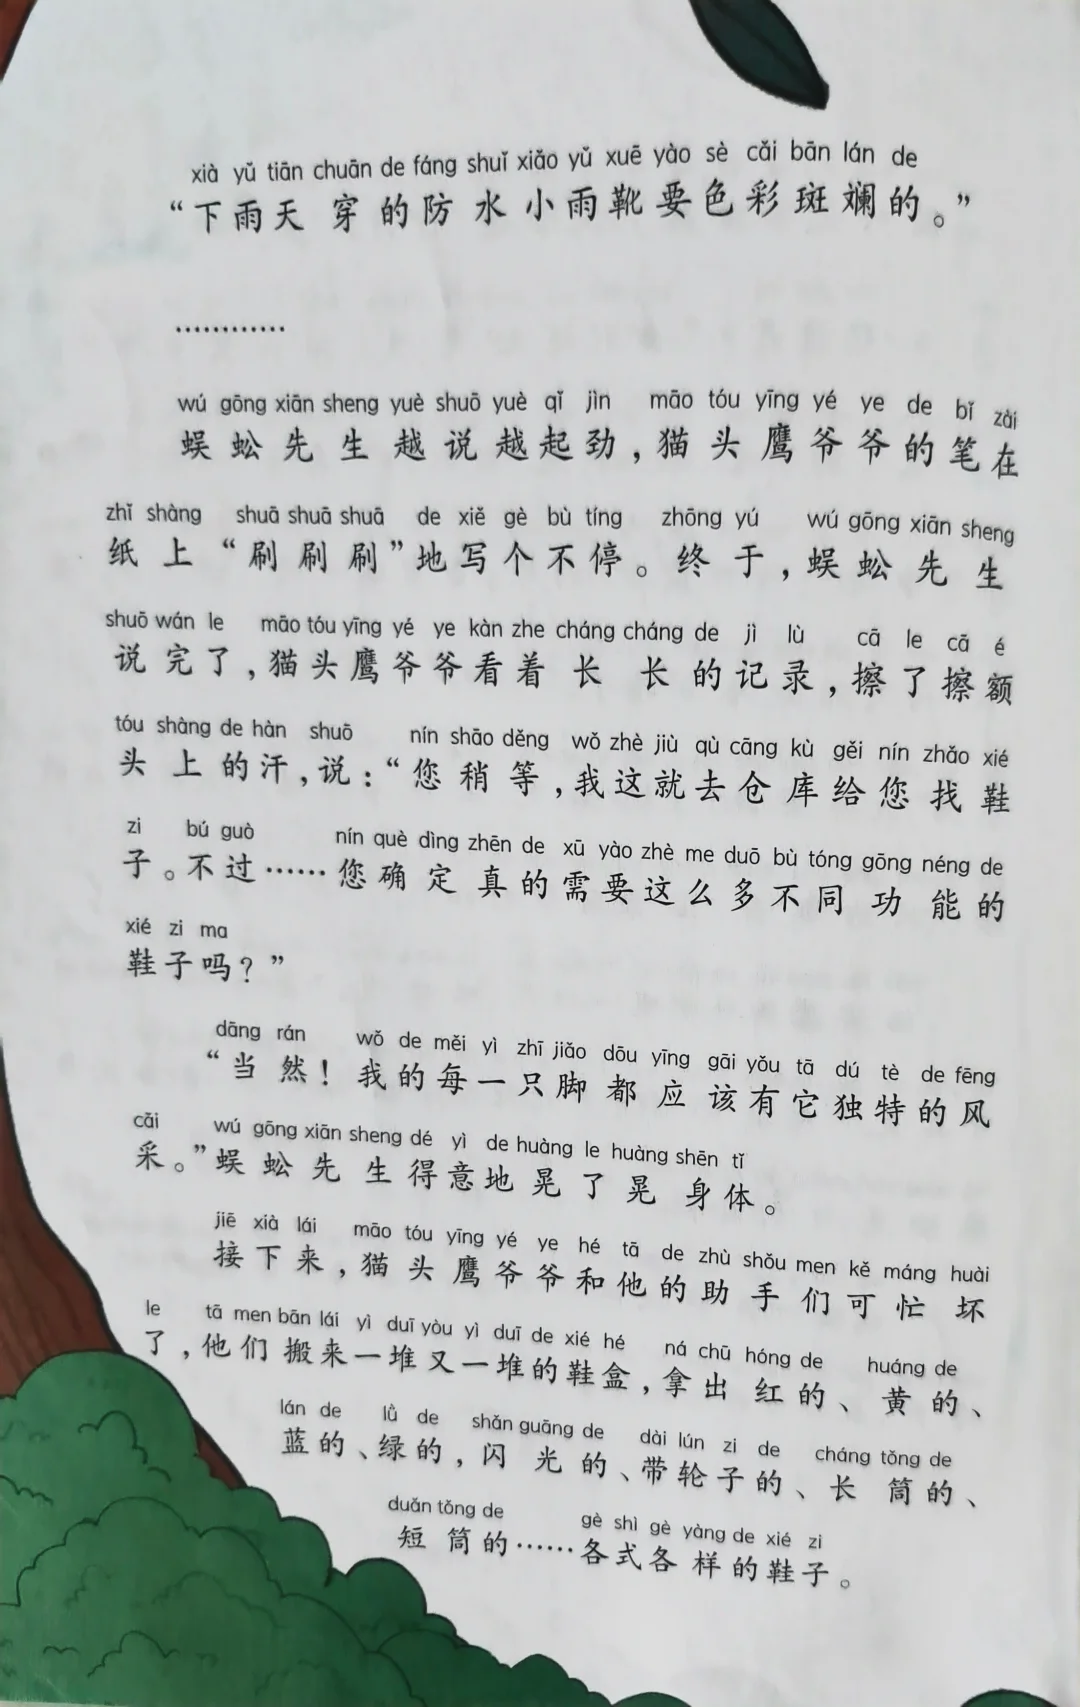 xià yǔ tiān chuān de fáng shuǐ xiǎo yǔ xuē yào sè cǎi bān lán de
“下雨天穿的防水小雨靴要色彩斑斓的。”
…………
wú gōng xiān sheng yuè shuō yuè qǐ jìn māo tóu yīng yé ye de bǐ zài
蜈蚣先生越说越起劲,猫头鹰爷爷的笔在
zhǐ shàng shuā shuā shuā de xiě gè bù tíng zhōng yú wú gōng xiān sheng
纸上“刷刷刷”地写个不停。终于,蜈蚣先生
shuō wán le māo tóu yīng yé ye kàn zhe cháng cháng de jì lù cā le cā é
说完了,猫头鹰爷爷看着长长的记录,擦了擦额
tóu shàng de hàn shuō nín shāo děng wǒ zhè jiù qù cāng kù gěi nín zhǎo xié
头上的汗,说:“您稍等,我这就去仓库给您找鞋
zi bú guò nín què dìng zhēn de xū yào zhè me duō bù tóng gōng néng de
子。不过……您确定真的需要这么多不同功能的
xié zi ma
鞋子吗?”
dāng rán wǒ de měi yì zhī jiǎo dōu yīng gāi yǒu tā dú tè de fēng
“当然!我的每一只脚都应该有它独特的风
cǎi wú gōng xiān sheng dé yì de huàng le huàng shēn tǐ
采。”蜈蚣先生得意地晃了晃身体。
jiē xià lái māo tóu yīng yé ye hé tā de zhù shǒu men kě máng huài
接下来,猫头鹰爷爷和他的助手们可忙坏
le tā men bān lái yì duī yòu yì duī de xié hé ná chū hóng de huáng de
了,他们搬来一堆又一堆的鞋盒,拿出红的、黄的、
lán de lǜ de shǎn guāng de dài lún zi de cháng tǒng de
蓝的、绿的,闪光的、带轮子的、长筒的、
duǎn tǒng de gè shì gè yàng de xié zi
短筒的……各式各样的鞋子。